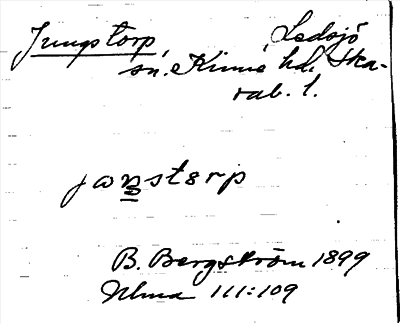 Jungstorp, Ledsjö
sn. Kinne hd. Ska-
rab. l.
jaŋstorp
B. Bergström 1899
Ulma 111:109